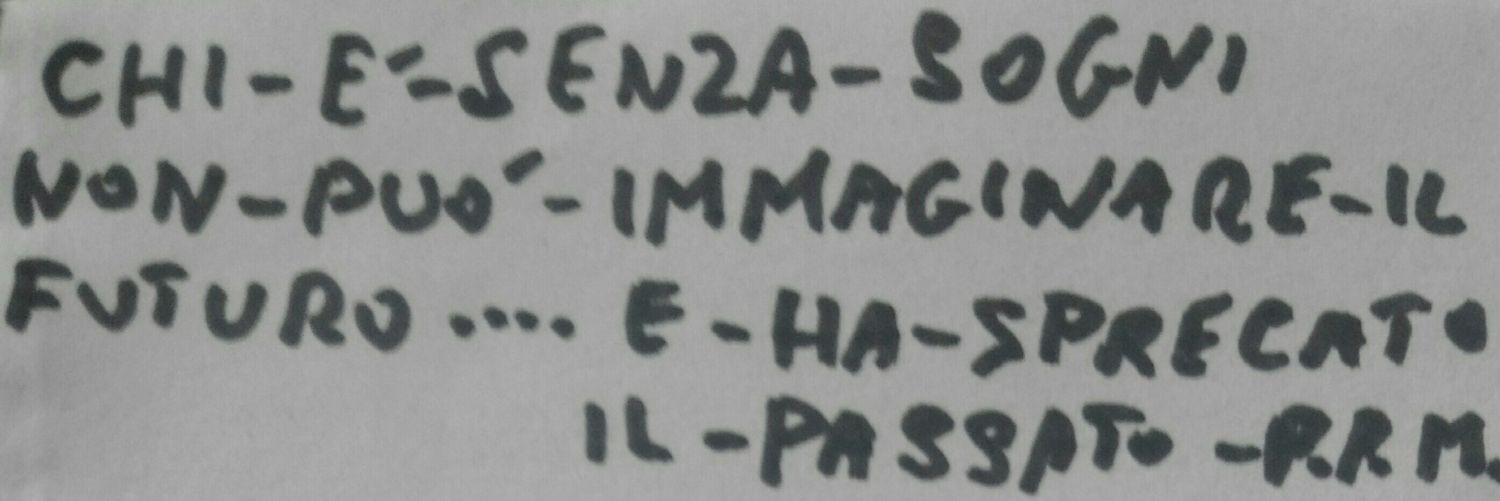 CHI-E'-SENZA-SOGNI
NON-PUO'-IMMAGINARE-IL
FUTURO .... E-HA-SPRECATO
IL-PASSATO-P.R M.